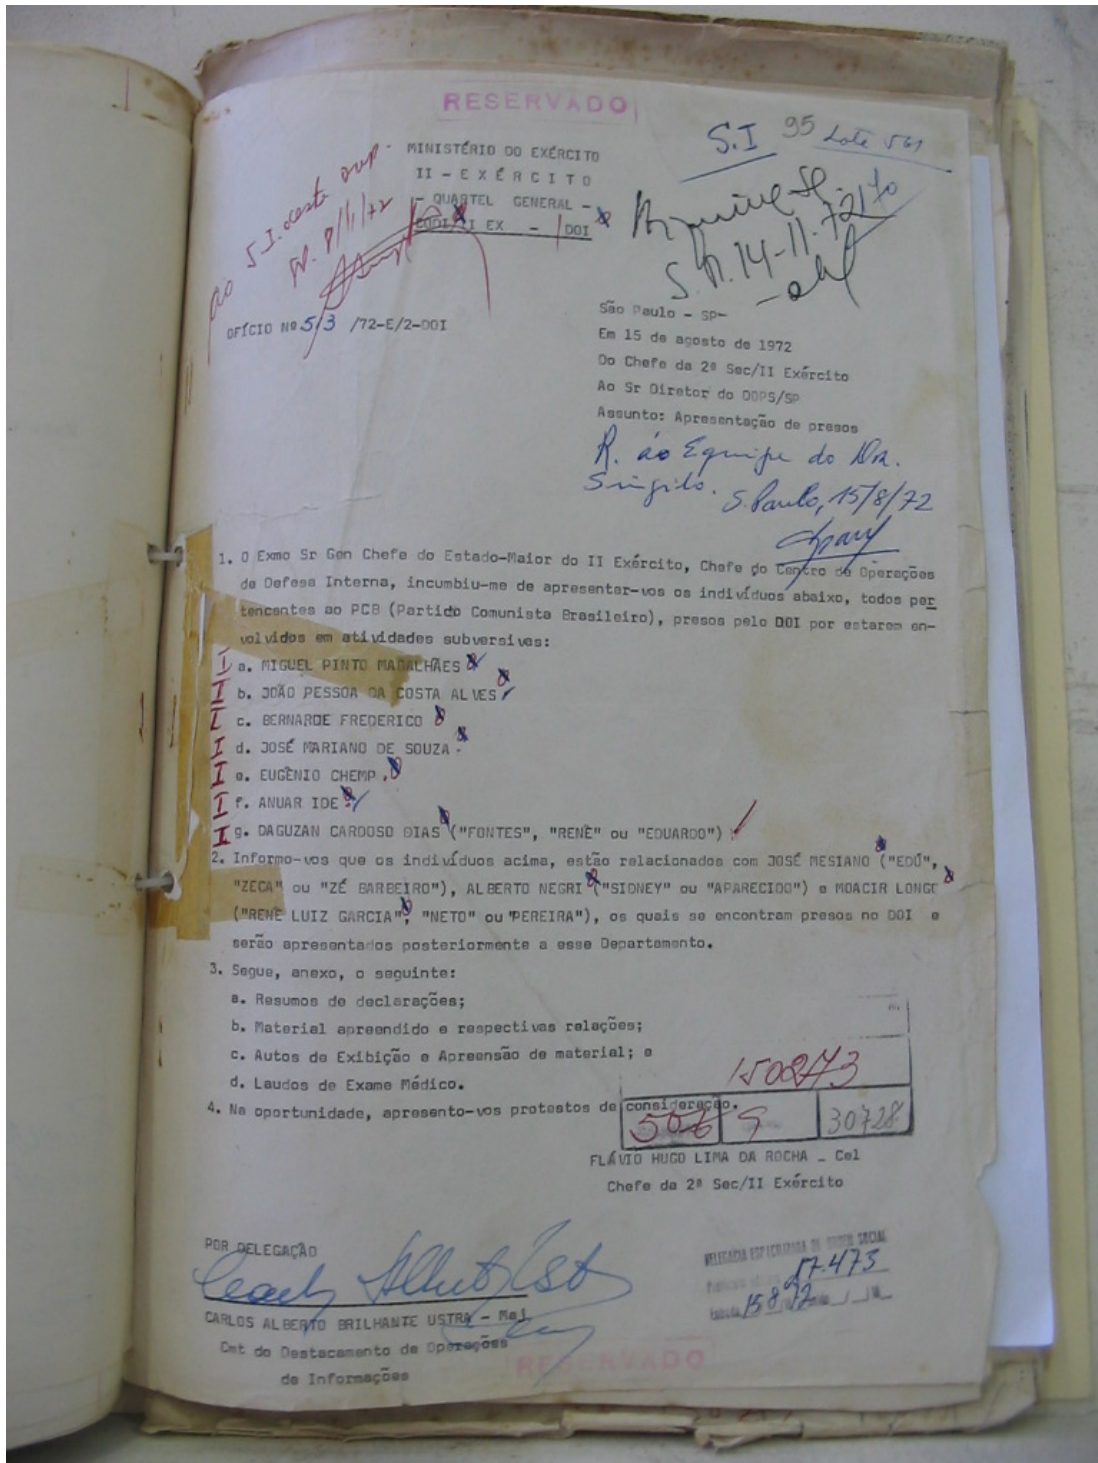 RESERVADO
S.I 95 Lote 561
MINISTÉRIO DO EXÉRCITO
II - EXÉRCITO
- QUARTEL GENERAL -
CODI/II EX - DOI
ao S.I. desta
8/11/72
Arquive-se.
S.P. 14-11-72
OFÍCIO Nº 513 /72-E/2-DOI
São Paulo - SP-
Em 15 de agosto de 1972
Do Chefe da 2ª Sec/II Exército
Ao Sr Diretor do DOPS/SP
Assunto: Apresentação de presos
R. ao Equipe do Dr.
Singilo. S. Paulo, 15/8/72
1. O Exmo Sr Gen Chefe do Estado-Maior do II Exército, Chefe do Centro de Operações
de Defesa Interna, incumbiu-me de apresentar-vos os indivíduos abaixo, todos per
tencentes ao PCB (Partido Comunista Brasileiro), presos pelo DOI por estarem en-
volvidos em atividades subversivas:
a. MIGUEL PINTO MAGALHÃES
b. JOÃO PESSOA DA COSTA ALVES
c. BERNARDE FREDERICO
d. JOSÉ MARIANO DE SOUZA -
e. EUGÊNIO CHEMP.
f. ANUAR IDE -
g. DAGUZAN CARDOSO DIAS ("FONTES", "RENÊ" ou "EDUARDO")
2. Informo-vos que os indivíduos acima, estão relacionados com JOSÉ MESIANO ("EDÚ",
"ZECA" ou "ZÉ BARBEIRO"), ALBERTO NEGRI ("SIDNEY" ou "APARECIDO") e MOACIR LONGO
("RENÊ LUIZ GARCIA", "NETO" ou "PEREIRA"), os quais se encontram presos no DOI e
serão apresentados posteriormente a esse Departamento.
3. Segue, anexo, o seguinte:
a. Resumos de declarações;
b. Material apreendido e respectivas relações;
c. Autos de Exibição e Apreensão de material; e
d. Laudos de Exame Médico.
150273
4. Na oportunidade, apresento-vos protestos de consideração.
50 6 9 30728
FLÁVIO HUGO LIMA DA ROCHA - Cel
Chefe da 2ª Sec/II Exército
POR DELEGAÇÃO
DELEGACIA ESPECIALIZADA DE ORDEM SOCIAL
57.473
15 8 72
CARLOS ALBERTO BRILHANTE USTRA - Maj
Cmt do Destacamento de Operações
de Informações
RESERVADO